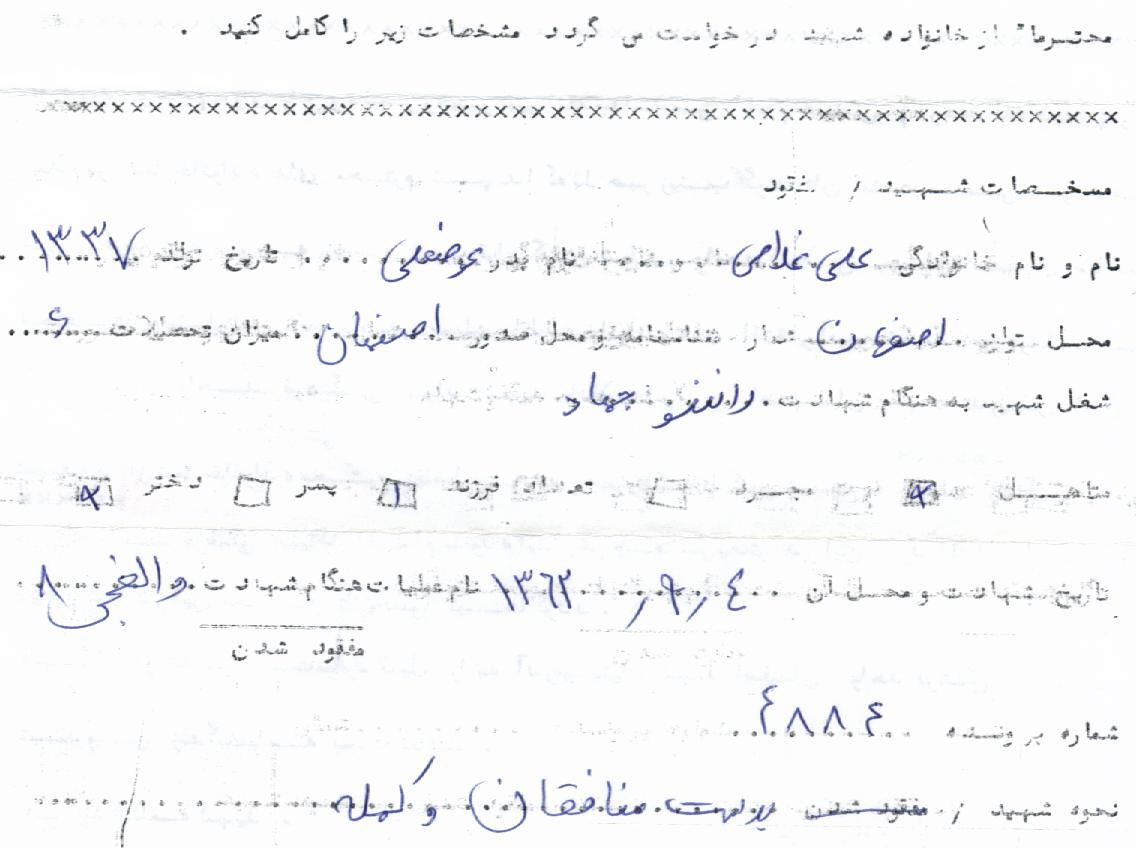 محترماً از خانواده شهید درخواست می گردد مشخصات زیر را کامل کنید .
xxxxxxxxxxxxxxxxxxxxxxxxxxxxxxxxxxxxxxxxxxxxxxxxxxxxxxxx
مشخصات شهید / مفقود
نام و نام خانوادگی علی غلامی نام پدر عوضعلی تاریخ تولد ۱۳۳۷
محل تولد اصفهان شماره شناسنامه و محل صدور اصفهان میزان تحصیلات ۶
شغل شهید به هنگام شهادت راننده جهاد
متاهل x مجرد تعداد فرزند ۱ پسر دختر x
تاریخ شهادت و محل آن ۱۳۶۲/۹/۴ نام عملیات هنگام شهادت والفجر ۸
مفقود شدن
شماره پرونده ۴۸۸۴
نحوه شهید / مفقود شدن بدست منافقان و کمله